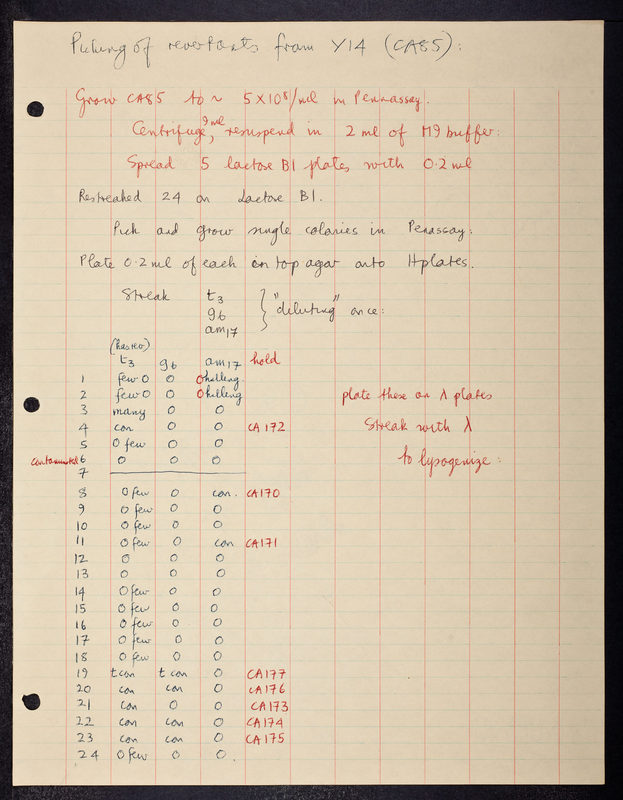 Picking of revertants from Y14 (CA85):
Grow CA85 to ~ 5×10⁸/ml in Penassay.
Centrifuge 9ml, resuspend in 2 ml of M9 buffer:
Spread 5 lactose B1 plates with 0.2 ml
Restreaked 24 on Lactose B1.
Pick and grow single colonies in Penassay.
Plate 0.2 ml of each in top agar onto H plates.
Streak t3
g6
am17
} "diluting" once:
(has rev)
t3 g6 am17 hold
1 few 0 0 0 killing
2 few 0 0 0 killing plate these on λ plates
3 many 0 0
4 con 0 0 CA172 Streak with λ
5 0 few 0 0
contaminated 6 0 0 0 to lysogenize:
7
8 0 few 0 con. CA170
9 0 few 0 0
10 0 few 0 0
11 0 few 0 con CA171
12 0 0 0
13 0 0 0
14 0 few 0 0
15 0 few 0 0
16 0 few 0 0
17 0 few 0 0
18 0 few 0 0
19 t con t con 0 CA177
20 con con 0 CA176
21 con 0 0 CA173
22 con con 0 CA174
23 con con 0 CA175
24 0 few 0 0.